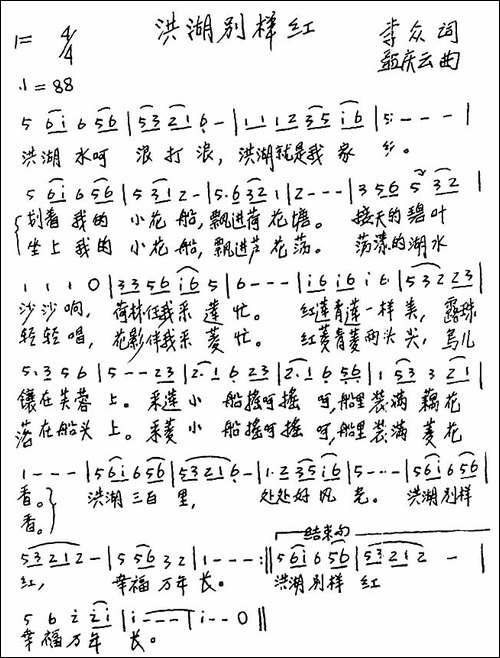 洪湖别样红
1= 4/4
李众 词
孟庆云 曲
♩=88
5 6i 6 56 | 5321 6 - | 1 1 1 235 i6 | 5 - - - |
洪湖 水呵 浪打浪，洪湖就是我 家 乡。
5 6i 6 56 | 5 3 1 2 - | 5·6 3 2 1 | 2 - - - | 3 5 6 5 32 |
划着 我的 小花 船，飘进荷花塘。 接天的碧叶
坐上 我的 小花 船，飘进芦花荡。 荡漾的湖水
1 1 1 0 | 3 3 5 6 i6 5 | 6 - - - | i6 i6 i 6 | 5 3 2 2 3 |
沙沙响，荷林任我采 莲 忙。 红莲青莲一样美，露珠
轻轻唱，花影伴我采 菱 忙。 红菱青菱两头尖，鸟儿
5·3 5 6 | 5 - - 23 | 2·1 6 23 | 2·1 6 56 | 1 53 3 21 |
镶在芙蓉 上。采莲小 船摇呵摇 呵，船里装满 藕花
落在船头 上。采菱小 船摇呵摇 呵，船里装满 菱花
1 - - - | 56i656 | 5321 6 - | 1·235i6 | 5 - - - | 56i656 |
香。 洪湖三百 里， 处处好风 光。 洪湖别样
香。
结束句
53212 - | 5 56 3 2 | 1 - - - :‖ 5 6i 6 56 | 53212 - |
红， 幸福万年 长。 洪湖别样 红
5 6 2 2i | i - - - | i - - 0 ‖
幸福万年 长。